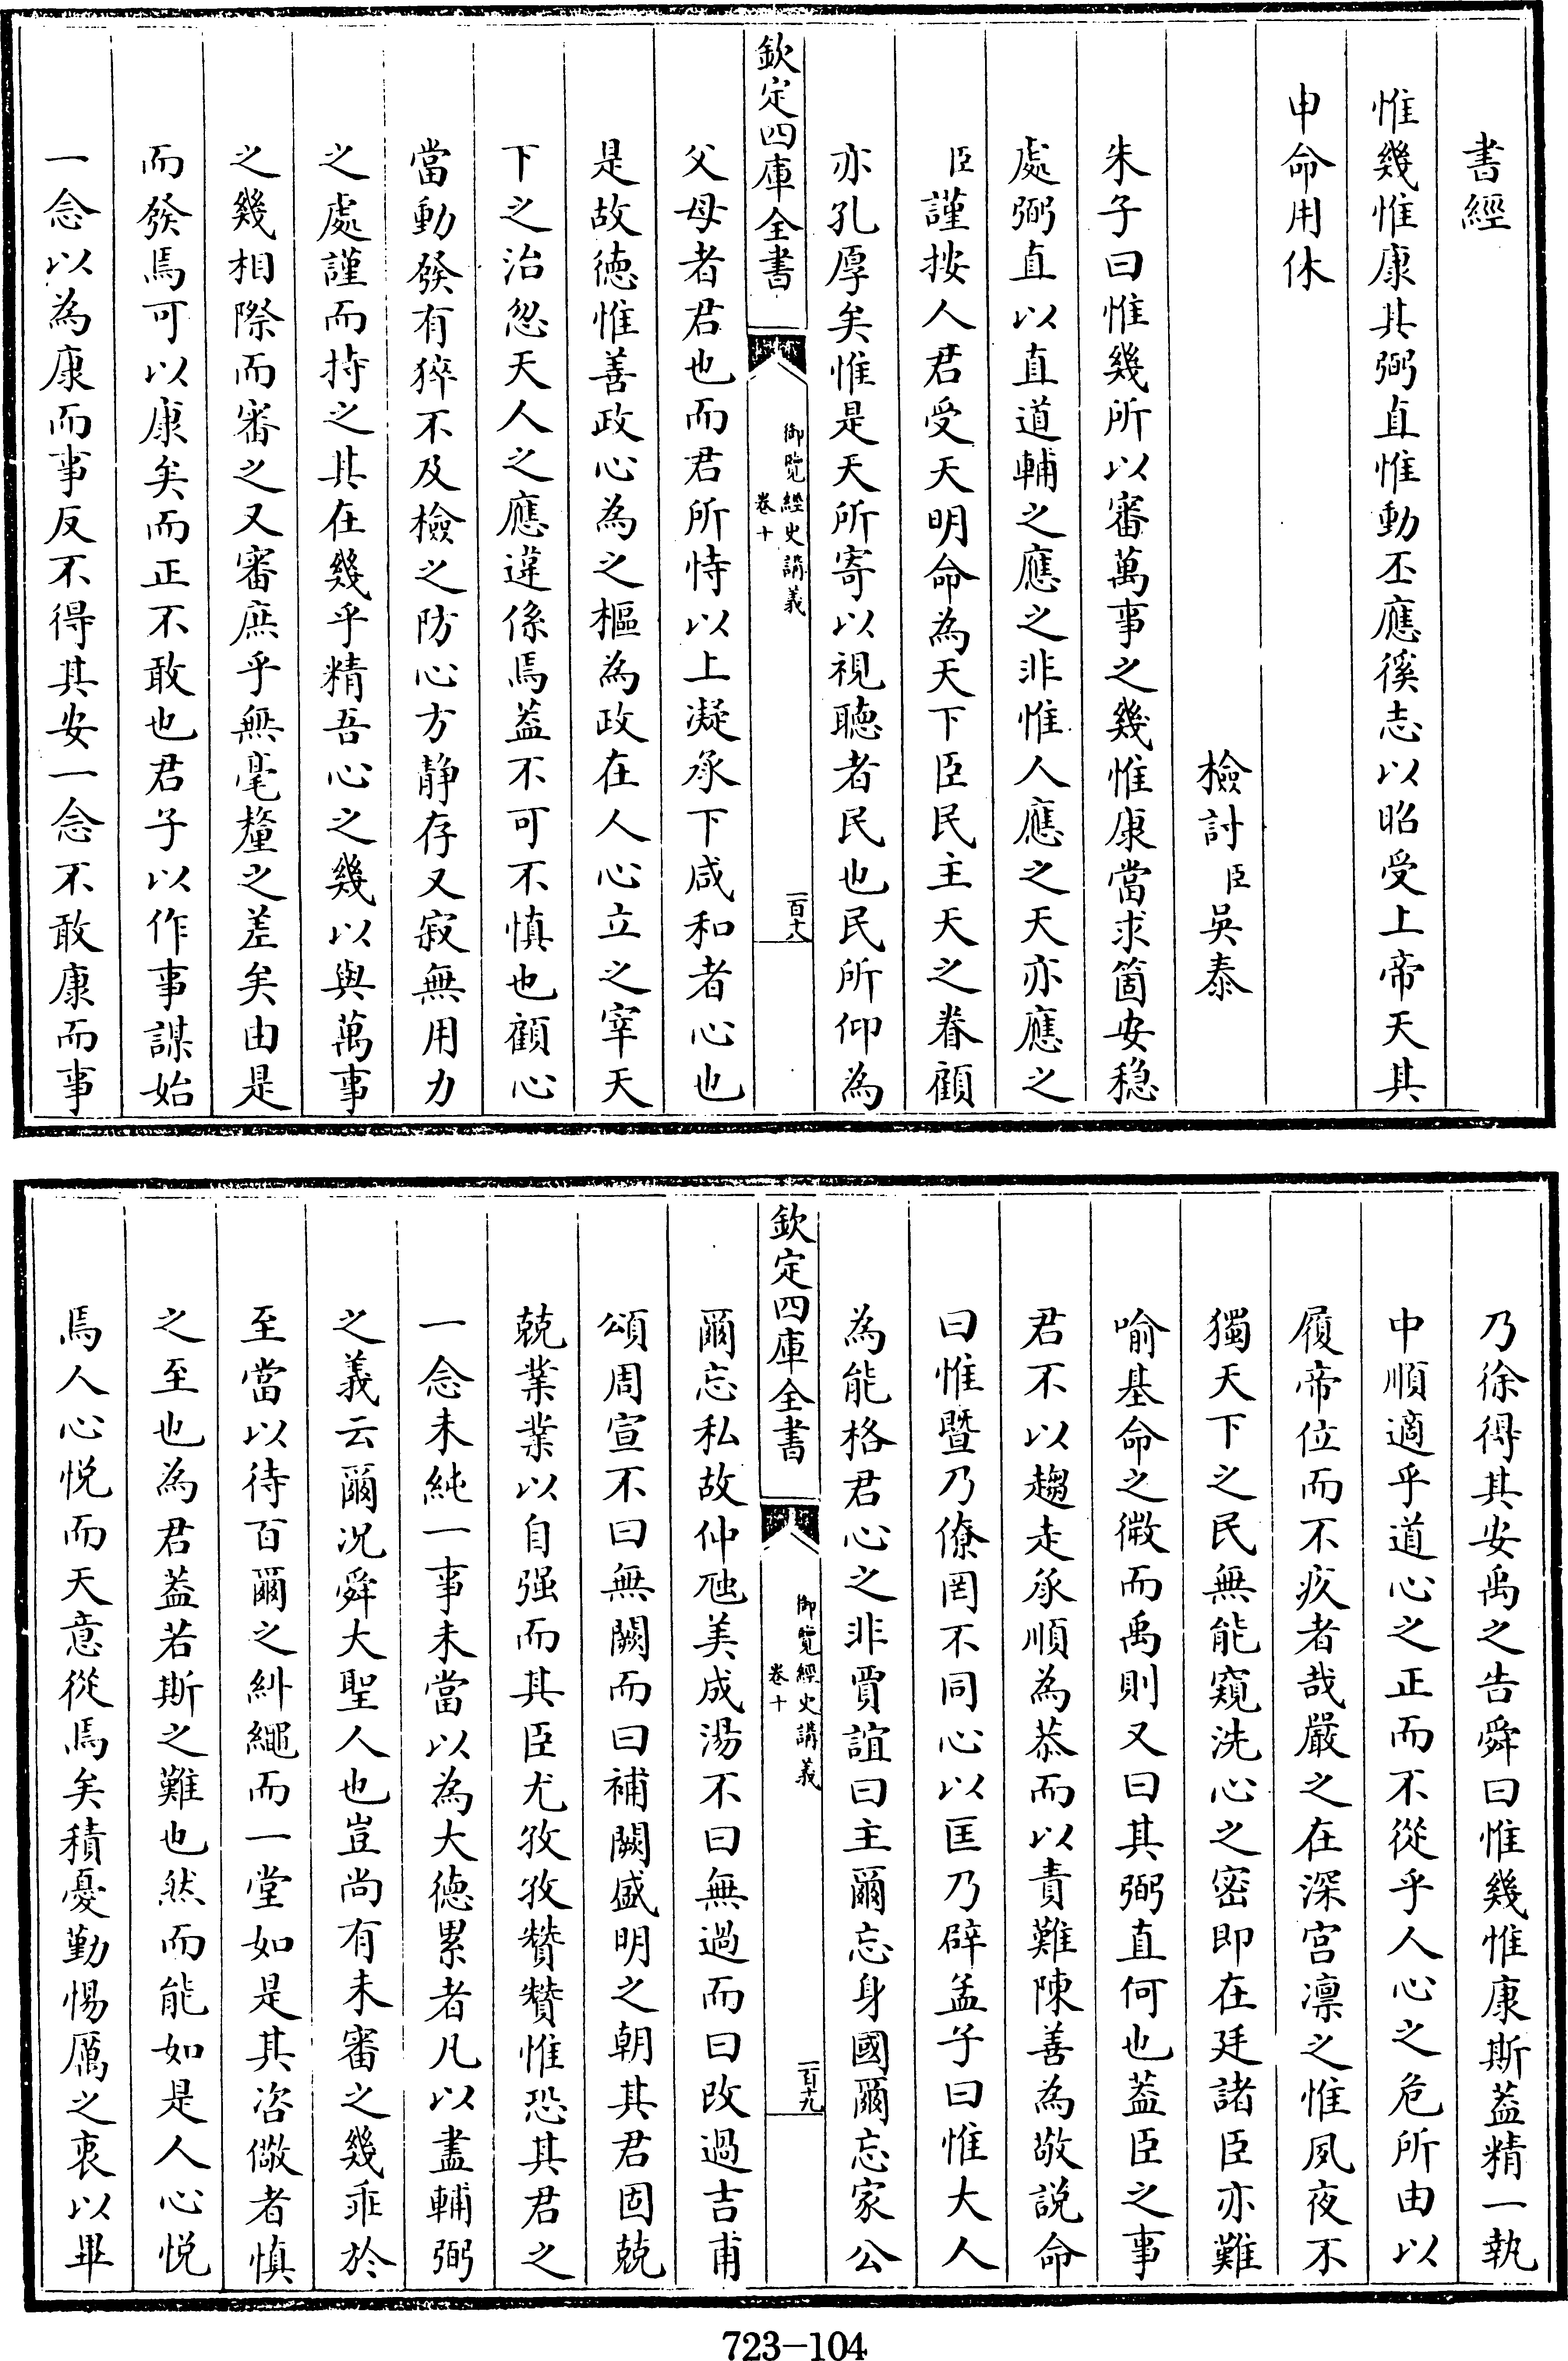 書經
惟幾惟康其弼直惟動丕應徯志以昭受上帝天其
申命用休
檢討臣吳泰
朱子曰惟幾所以審萬事之幾惟康當求箇安稳
處弼直以直道輔之應之非惟人應之天亦應之
臣謹按人君受天明命為天下臣民主天之眷顧
亦孔厚矣惟是天所寄以視聽者民也民所仰為
欽定四庫全書
御覽經史講義
卷十
一百十八
父母者君也而君所恃以上凝承下咸和者心也
是故德惟善政心為之樞為政在人心立之宰天
下之治忽天人之應違係焉益不可不慎也顧心
當動發有猝不及檢之防心方静存又寂無用力
之處謹而持之其在幾乎精吾心之幾以與萬事
之幾相際而審之又審庶乎無毫釐之差矣由是
而發焉可以康矣而正不敢也君子以作事謀始
一念以為康而事反不得其安一念不敢康而事
乃徐得其安禹之告舜曰惟幾惟康斯蓋精一執
中順適乎道心之正而不從乎人心之危所由以
履帝位而不疚者哉嚴之在深宮凛之惟夙夜不
獨天下之民無能窺洗心之密即在廷諸臣亦難
喻基命之微而禹則又曰其弼直何也蓋臣之事
君不以趨走承順為恭而以責難陳善為敬說命
曰惟暨乃僚罔不同心以匡乃辟孟子曰惟大人
為能格君心之非賈誼曰主爾忘身國爾忘家公
欽定四庫全書
御覽經史講義
卷十
一百十九
爾忘私故仲虺美成湯不曰無過而曰改過吉甫
頌周宣不曰無闕而曰補闕盛明之朝其君固兢
兢業業以自强而其臣尤孜孜贊贊惟恐其君之
一念未純一事未當以為大德累者凡以盡輔弼
之義云爾况舜大聖人也豈尚有未審之幾乖於
至當以待百爾之糾繩而一堂如是其咨儆者慎
之至也為君蓋若斯之難也然而能如是人心悅
焉人心悅而天意從焉矣積憂勤惕厲之衷以畢
723-104